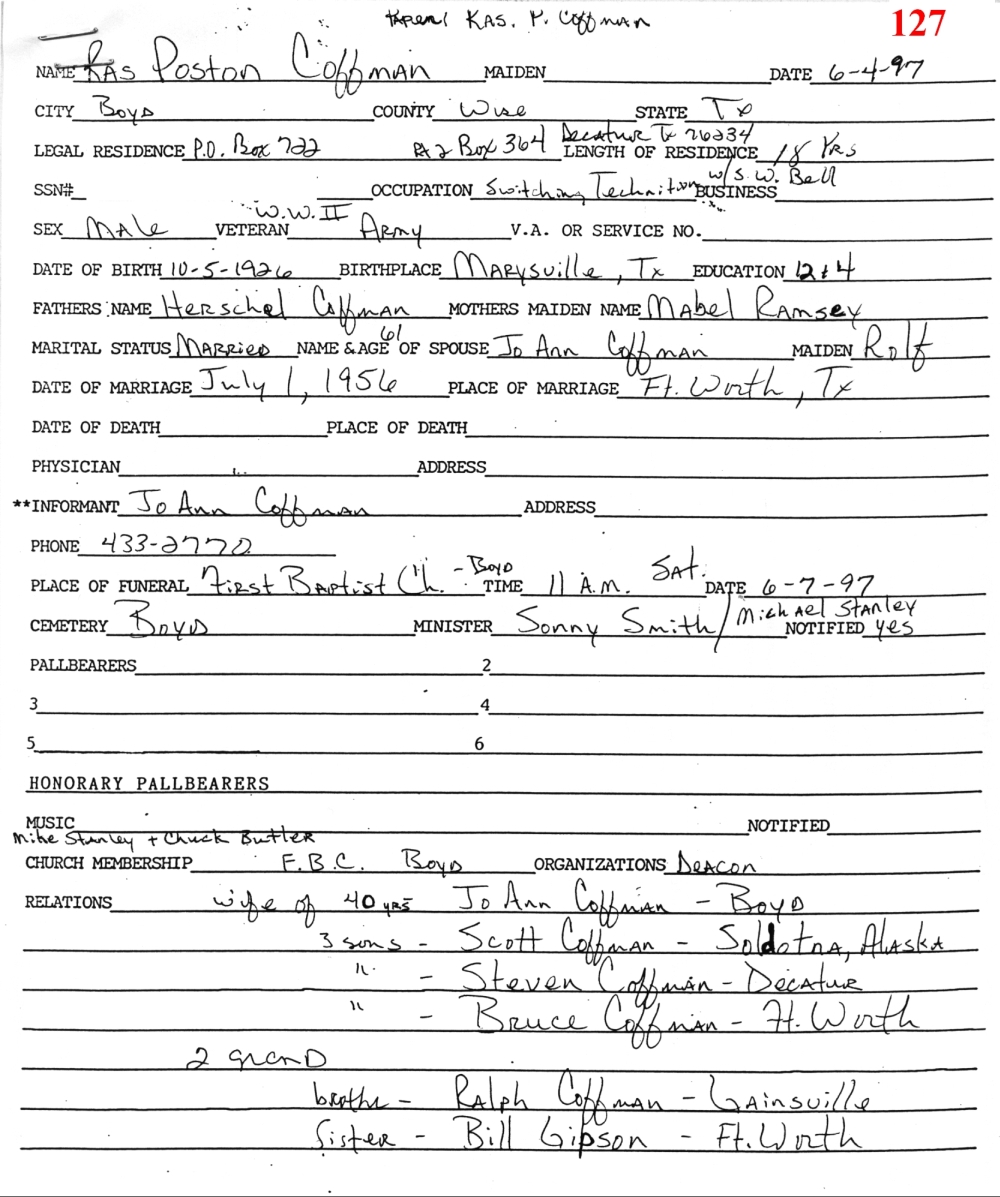 KAS. P. Coffman
127
NAME Ras Poston Coffman MAIDEN DATE 6-4-97
CITY Boyd COUNTY Wise STATE Tx
Decatur Tx 76234
LEGAL RESIDENCE P.O. Box 722 Rt 2 Box 364 LENGTH OF RESIDENCE 18 Yrs
w/S.W. Bell
SSN# OCCUPATION Switching BUSINESS
W.W.II
SEX Male VETERAN Army V.A. OR SERVICE NO.
DATE OF BIRTH 10-5-1926 BIRTHPLACE Marysville, Tx EDUCATION 12+4
FATHERS NAME Herschel Coffman MOTHERS MAIDEN NAME Mabel Ramsey
61
MARITAL STATUS Married NAME & AGE OF SPOUSE Jo Ann Coffman MAIDEN Rolf
DATE OF MARRIAGE July 1, 1956 PLACE OF MARRIAGE Ft. Worth, Tx
DATE OF DEATH PLACE OF DEATH
PHYSICIAN ADDRESS
**INFORMANT Jo Ann Coffman ADDRESS
PHONE 433-2770
PLACE OF FUNERAL First Baptist Ch. - Boyd TIME 11 A.M. Sat. DATE 6-7-97
CEMETERY Boyd MINISTER Sonny Smith / Michael Stanley NOTIFIED yes
PALLBEARERS 2
3 4
5 6
HONORARY PALLBEARERS
MUSIC NOTIFIED
Mike Stanley + Chuck Butler
CHURCH MEMBERSHIP F.B.C. Boyd ORGANIZATIONS Deacon
RELATIONS wife of 40 yrs Jo Ann Coffman - Boyd
3 sons - Scott Coffman - Soldotna, Alaska
" - Steven Coffman - Decatur
" - Bruce Coffman - Ft. Worth
2 grand
brother - Ralph Coffman - Gainsville
Sister - Bill Gipson - Ft. Worth